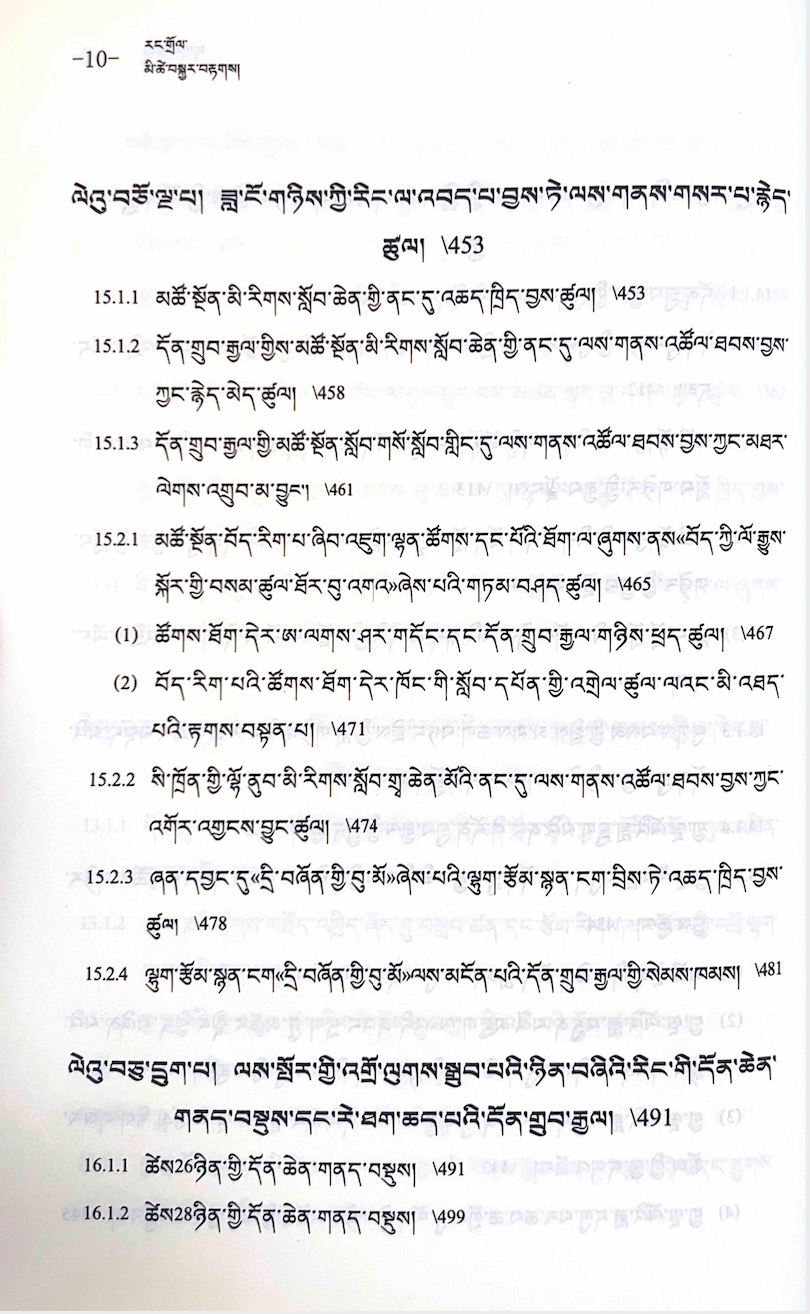 -10-
རང་གྲོལ་
མི་ཚེ་བསྐྱར་བརྟགས།
ལེའུ་བཅོ་ལྔ་པ། ཟླ་ངོ་གཉིས་ཀྱི་རིང་ལ་འབད་པ་བྱས་ཏེ་ལས་གནས་གསར་པ་རྙེད་
ཚུལ། \453
15.1.1 མཚོ་སྔོན་མི་རིགས་སློབ་ཆེན་གྱི་ནང་དུ་འཆད་ཁྲིད་བྱས་ཚུལ། \453
15.1.2 དོན་གྲུབ་རྒྱལ་གྱིས་མཚོ་སྔོན་མི་རིགས་སློབ་ཆེན་གྱི་ནང་དུ་ལས་གནས་འཚོལ་ཐབས་བྱས་
ཀྱང་རྙེད་མེད་ཚུལ། \458
15.1.3 དོན་གྲུབ་རྒྱལ་གྱི་མཚོ་སྔོན་སློབ་གསོ་སློབ་གླིང་དུ་ལས་གནས་འཚོལ་ཐབས་བྱས་ཀྱང་མཐར་
ལེགས་འགྲུབ་མ་བྱུང་། \461
15.2.1 མཚོ་སྔོན་བོད་རིག་པ་ཞིབ་འཇུག་ལྷན་ཚོགས་དང་པོའི་ཐོག་ལ་ཞུགས་ནས《བོད་ཀྱི་ལོ་རྒྱུས་
སྐོར་གྱི་བསམ་ཚུལ་ཐོར་བུ་འགའ》ཞེས་པའི་གཏམ་བཤད་ཚུལ། \465
(1) ཚོགས་ཐོག་དེར་ཨ་ལགས་ཤར་གདོང་དང་དོན་གྲུབ་རྒྱལ་གཉིས་ཕྲད་ཚུལ། \467
(2) བོད་རིག་པའི་ཚོགས་ཐོག་དེར་ཁོང་གི་སློབ་དཔོན་གྱི་འགྲེལ་ཚུལ་ལའང་མི་འཐད་
པའི་རྟགས་བསྟན་པ། \471
15.2.2 སི་ཁྲོན་གྱི་ལྷོ་ནུབ་མི་རིགས་སློབ་གྲྭ་ཆེན་མོའི་ནང་དུ་ལས་གནས་འཚོལ་ཐབས་བྱས་ཀྱང་
འགོར་འགྱངས་བྱུང་ཚུལ། \474
15.2.3 ཞན་དབྱང་དུ《དྲི་བཞོན་གྱི་བུ་མོ》ཞེས་པའི་ལྷུག་རྩོམ་སྙན་ངག་བྲིས་ཏེ་འཆད་ཁྲིད་བྱས་
ཚུལ། \478
15.2.4 ལྷུག་རྩོམ་སྙན་ངག《དྲི་བཞོན་གྱི་བུ་མོ》ལས་མངོན་པའི་དོན་གྲུབ་རྒྱལ་གྱི་སེམས་ཁམས། \481
ལེའུ་བཅུ་དྲུག་པ། ལས་སྦྱོར་གྱི་འགྲོ་ལུགས་སྒྲུབ་པའི་ཉིན་བཞིའི་རིང་གི་དོན་ཆེན་
གནད་བསྡུས་དང་རེ་ཐག་ཆད་པའི་དོན་གྲུབ་རྒྱལ། \491
16.1.1 ཚེས26ཉིན་གྱི་དོན་ཆེན་གནད་བསྡུས། \491
16.1.2 ཚེས28ཉིན་གྱི་དོན་ཆེན་གནད་བསྡུས། \499